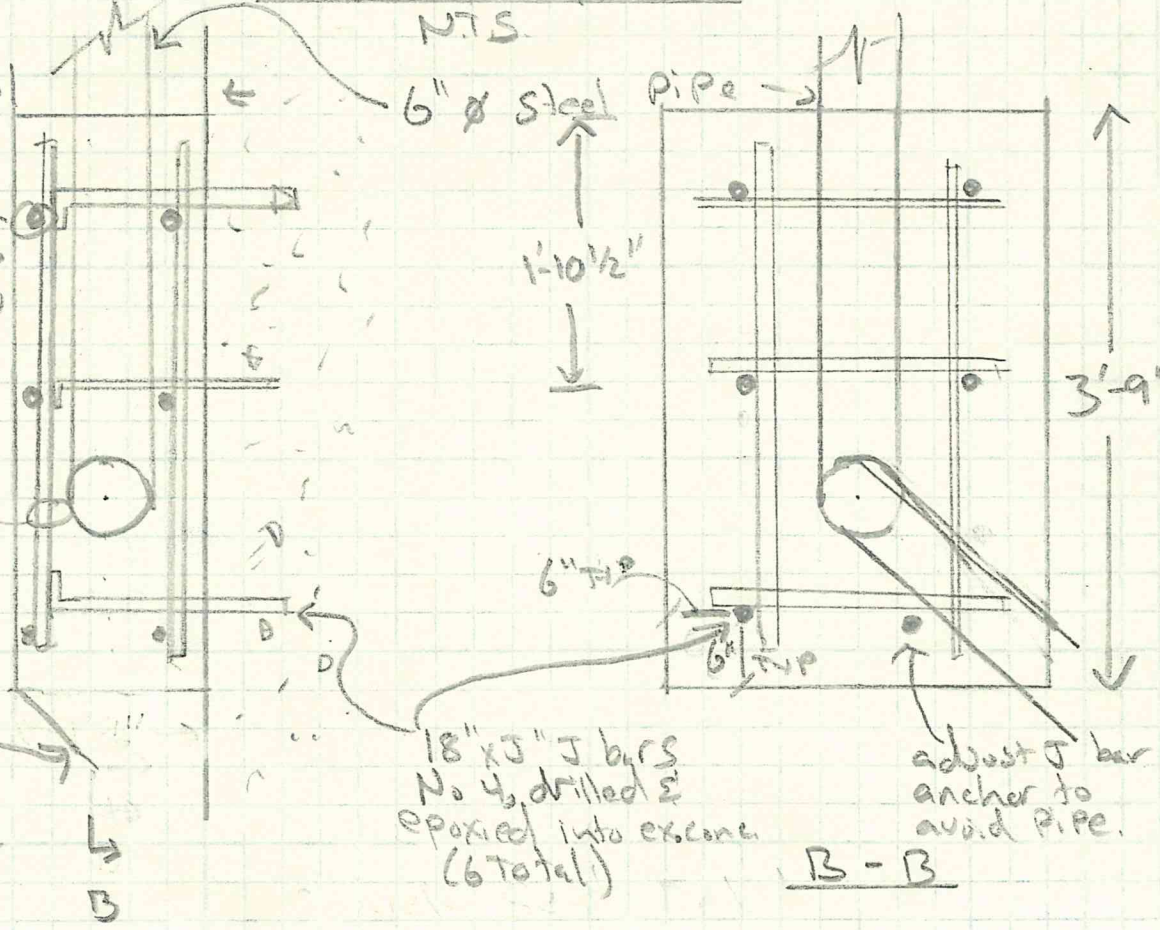 N.T.S.
6" Ø Steel
Pipe
1'-10 1/2"
3'-9"
6" TYP
6" TYP
18" x J" J bars
No 4, drilled &
epoxied into ex conc.
(6 Total)
adjust J bar
anchor to
avoid pipe.
B - B
B